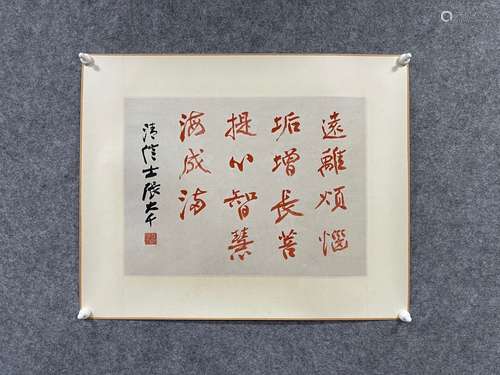 遠離煩惱
垢增長菩
提心智慧
海成滿
清信士張大千